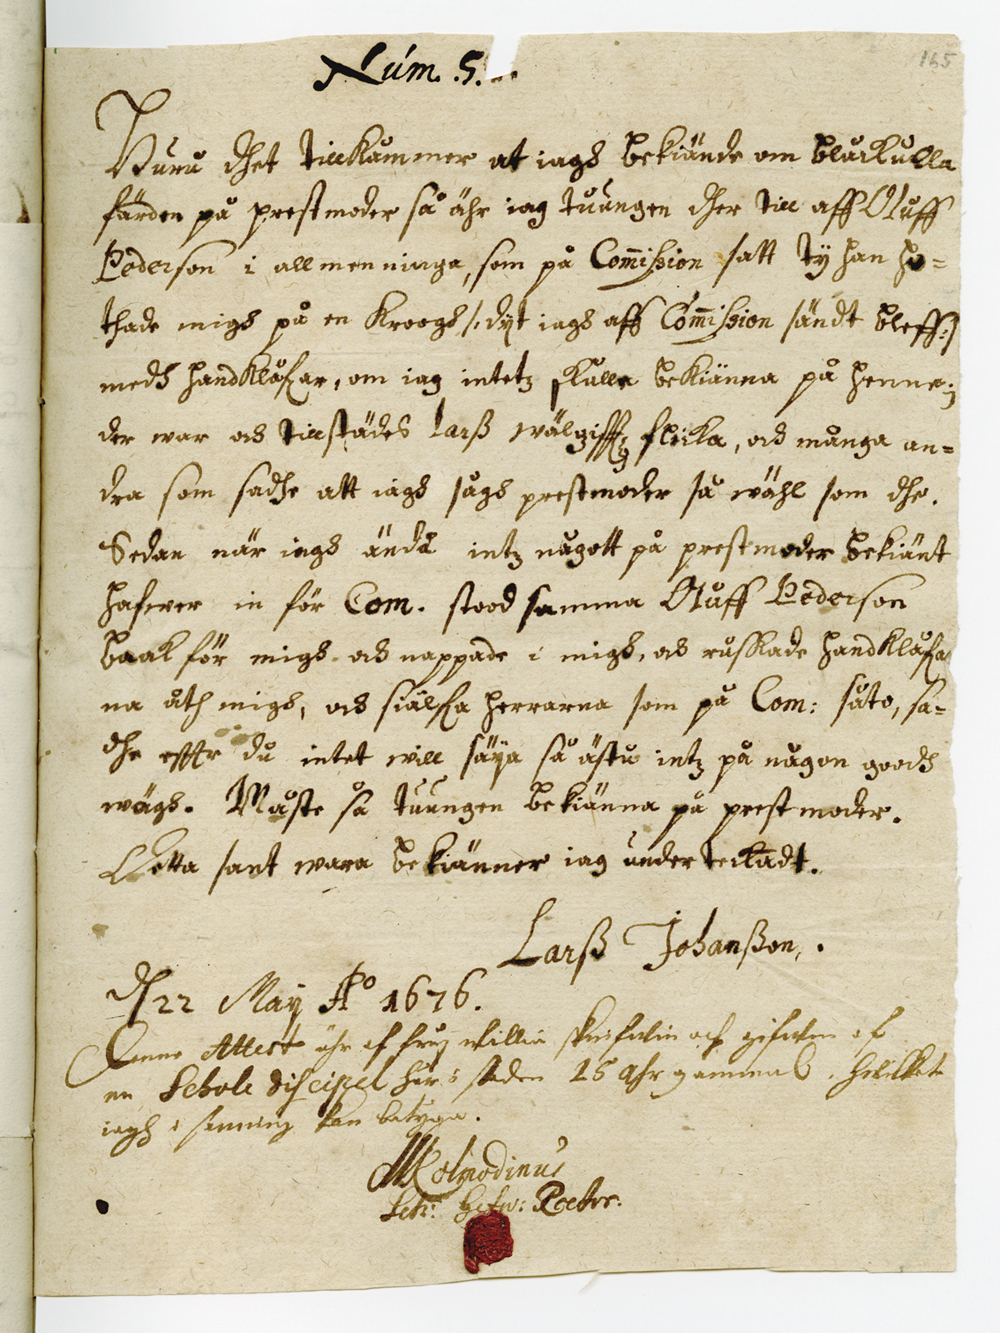 Núm. 5.
165
Huru dhet tillkåmmer at iagh bekiände om blåkulla
färden på prestmoder så ähr iag tuungen dher till aff Oluff
Pederson i allmenninga, som på Commission satt ty han ho=
thade migh på en kroogh /: dyt iagh aff Commission sändt bleff :/
medh handklåfar, om iag intet skulle bekiänna på henne;
der war och tillstädes Larß wälgiff flicka, och många an=
dra som sadhe att iagh sågh prestmoder så wähl som dhe.
Sedan när iagh ändå intz någott på prestmoder bekiänt
hafwer in för Com. stood samma Oluff Pederson
baak för migh och nappade i migh, och ruskade handklåfa
na åth migh, och siälfa herrarna som på Com: såto, sa=
dhe effter du intet will säya så ästu intz på någon goodh
wägh. Måste så tuungen bekiänna på prestmoder.
Detta sant wara bekiänner iag underteiknadt.
Larß Johanßon.
dh 22 May Ao 1676.
Denne Attest ähr af frij willia skrifwin och gifwin af
en Schole discipel här i staden 15 åhr gammal. hwilket
iagh i sanning kan betyga.
M Molnodinus
Sch: Rector.